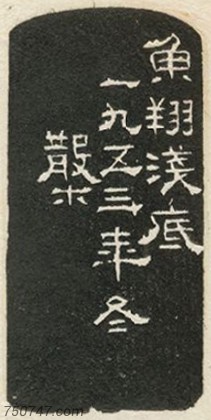 魚翔淺底
一九五三年冬
散木
750747.com